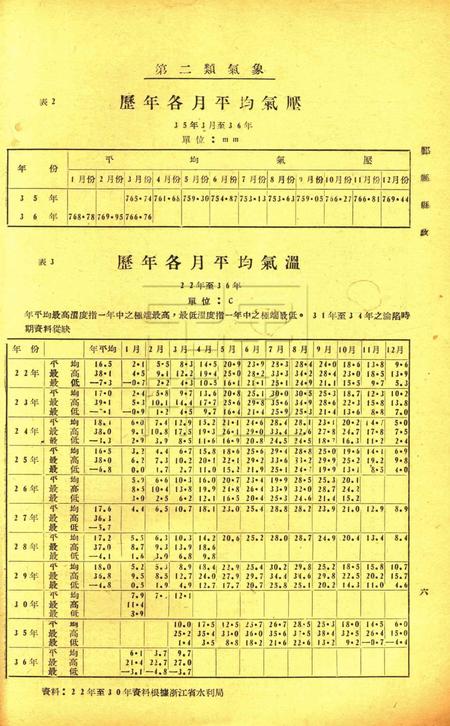 第二類氣象
表2
歷年各月平均氣壓
35年3月至36年
單位：mm
年份 平均氣壓
1月份 2月份 3月份 4月份 5月份 6月份 7月份 8月份 9月份 10月份 11月份 12月份
35年 765·74 761·68 759·30 754·87 753·13 753·63 759·05 766·27 766·81 769·44
36年 768·78 769·95 766·76
鄞縣縣政
表3
歷年各月平均氣溫
22年至36年
單位：C
年平均最高溫度指一年中之極端最高，最低溫度指一年中之極端最低。31年至34年之淪陷時
期資料從缺
年份 年平均 1月 2月 3月 4月 5月 6月 7月 8月 9月 10月 11月 12月
平均 16·5 2·1 5·5 8·3 14·5 20·9 23·9 28·3 28·4 24·0 18·6 13·8 9·6
22年 最高 38·1 4·5 9·1 12·2 19·4 25·8 28·2 33·3 34·2 28·4 23·0 18·5 13·9
最低 —7·3 —0·7 2·2 4·3 10·5 16·1 21·1 25·1 24·9 21·1 15·5 9·7 5·3
平均 17·0 2·4 5·8 9·7 13·6 20·8 25·1 30·0 30·5 25·3 18·7 12·3 10·2
23年 最高 39·1 5·3 10·1 14·4 17·7
最低 —7·1 —0·9 1·2 4·5 9·7 16·4 21·4 25·9 25·3 21·4 13·6 8·8 7·0
平均 18·1 6·0 7·4 12·9 15·2 21·1 24·6 28·4 28·1 23·1 20·2 14·7 5·0
24年 最高 38·0
最低
平均 16·5 3·2 4·4 6·7 15·8 18·6 25·6 29·4 28·8 25·0 19·6 14·1 6·9
25年 最高 38·0
最低 —6·8 0·0 1·7 2·7 11·0 15·2 21·9 25·1 24·7 19·9 13·1
平均 5·9 6·6 10·3 16·0 20·7 23·4 19·9 28·5 25·3 20·1
26年 最高 8·5 10·4 13·8 19·9 24·8 26·4 33·9 32·0 28·7 24·2
最低 3·9 2·5 6·2 12·1 16·5 20·4 25·3 24·6 21·4 15·2
平均 17·6 4·4 6·5 10·7 18·1 23·0 25·4 28·8 28·2 23·9 21·0 12·9 8·9
27年 最高 36·3
最低 —3·7
平均 17·2 5·5 6·3 10·3 14·2 20·6 25·2 28·0 28·7 24·9 20·4 13·4 8·4
28年 最高 37·0 8·7 9·3 13·9 18·6
最低 —4·1 1·6 3·9 6·8 9·8
平均 18·0 5·2 5·3 8·9 18·4 22·9 25·4 30·2 29·8 25·2 18·5 15·8 10·7
29年 最高 36·8 9·5 8·5 12·7 24·0 27·9 29·7 34·4 34·6 29·8 22·5 20·2 15·7
最低 —4·8 0·5 1·9 4·9 12·7 17·7 20·7 25·8 25·1 20·2 14·3 11·0 4·6
平均 7·9 7· 12·1
30年 最高 11·4
最低 3·9
平均 10·0 17·5 12·5 23·7 26·7 28·5 25·3 18·0 14·5 6·0
35年 最高 25·2 35·4 33·0 36·0 35·6 37·5 38·4 32·5 26·4 15·0
最低 1·4 3·5 8·8 18·2 21·6 22·6 13·2 9·2 —0·7 —4·4
平均 6·1 3·7 9·7
36年 最高 21·4 22·7 27·0
最低 —3·1 —4·8 —3·7
資料：22年至30年資料根據浙江省水利局
六